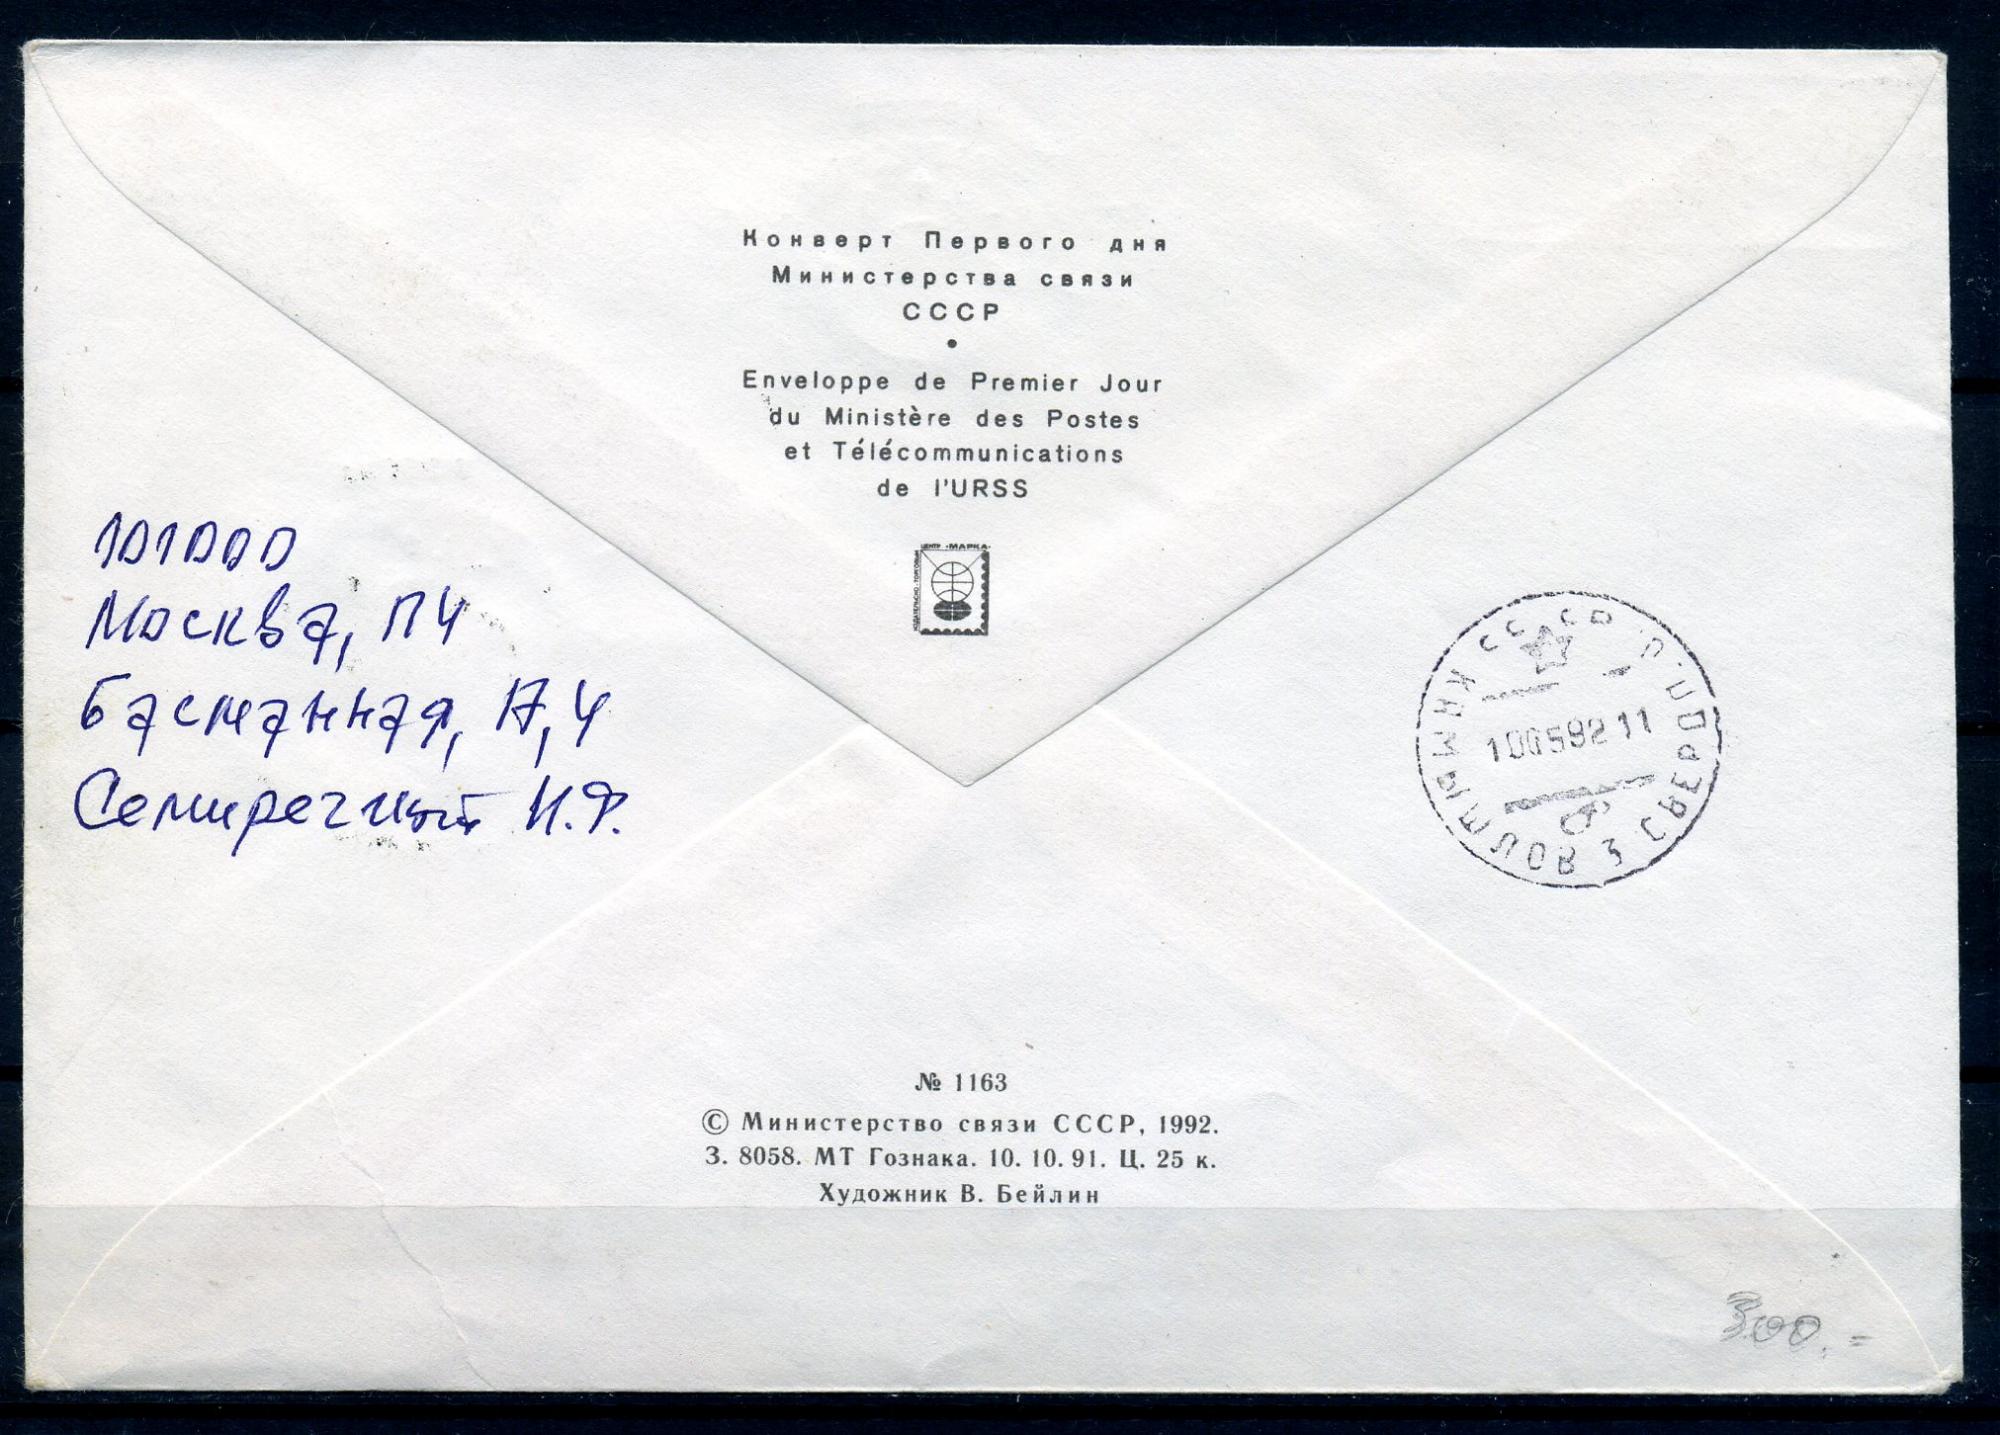 Конверт Первого дня
Министерства связи
СССР
•
Enveloppe de Premier Jour
du Ministère des Postes
et Télécommunications
de l'URSS
ЦЕНТР «МАРКА»
101000
Москва, ПЧ
Басманная,
Семиречный И.Ф.
100592 11
№ 1163
© Министерство связи СССР, 1992.
З. 8058. МТ Гознака. 10. 10. 91. Ц. 25 к.
Художник В. Бейлин
300.=